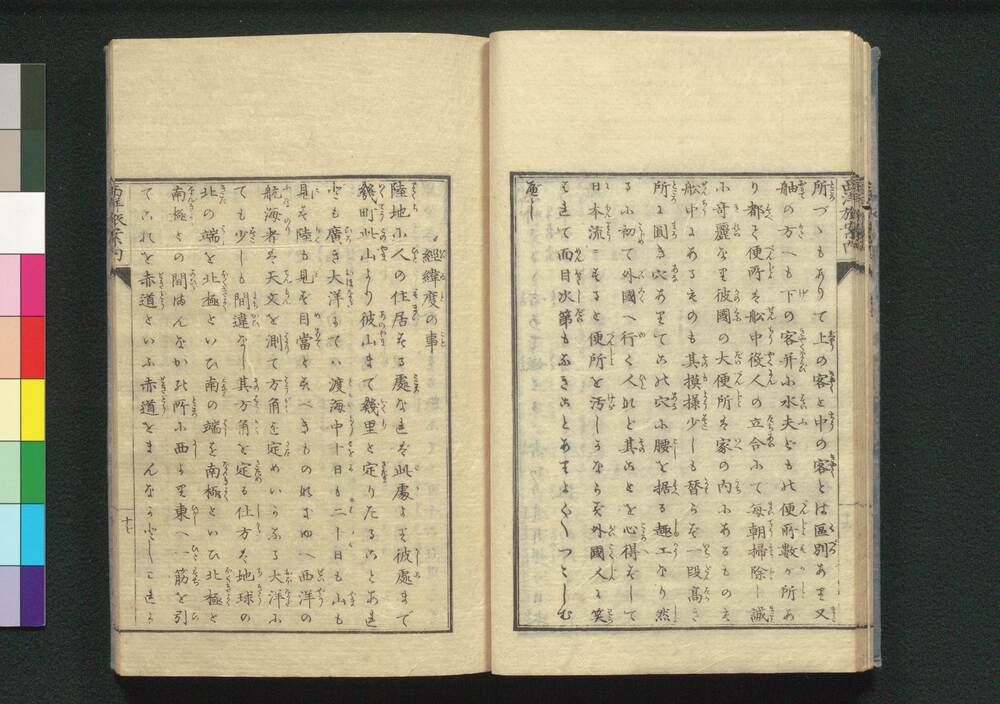 所づゝもありて上の客と中の客とは區別あり又
舳の方へも下の客并に水夫どもの便所數ケ所あ
り都て便所は舩中役人の立合にて毎朝掃除し誠
に奇麗なり彼國の大便所は家の内にあるものも
舩中にあるものも其摸様少しも替らず一段高き
所に圓き穴ありてこの穴に腰を据る趣工なり然
るに初て外國へ行く人など其ことを心得ずして
日本流にすると便所を汚しうならず外國人に笑
はれて面目次第もなきことあればよく〳〵つゝしむ
べし
經緯度の事
陸地に人の住居する處なれば此處より彼處まで
幾町此山より彼山まで幾里と定りたることあれ
ども廣き大洋にては渡海中十日も二十日も山も
見ず陸も見ず目當とすべきものなしゆへ西洋の
航海者は天文を測て方角を定めいかなる大洋に
ても少しも間違なし其方角を定る仕方は地球の
北の端を北極といひ南の端を南極といひ北極と
南極との間まんなかの所に西より東へ一筋を引
てこれを赤道といふ赤道をまんなかにしこれよ
西洋旅案内
十七